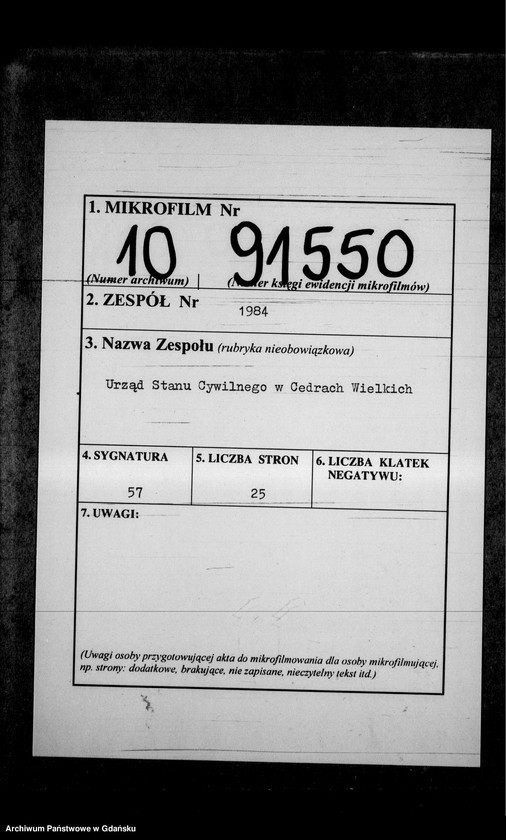 1. MIKROFILM Nr
10 91550
(Numer archiwum) (Numer księgi ewidencji mikrofilmów)
2. ZESPÓŁ Nr
1984
3. Nazwa Zespołu (rubryka nieobowiązkowa)
Urząd Stanu Cywilnego w Cedrach Wielkich
4. SYGNATURA
57
5. LICZBA STRON
25
6. LICZBA KLATEK
NEGATYWU:
7. UWAGI:
(Uwagi osoby przygotowującej akta do mikrofilmowania dla osoby mikrofilmującej.
np. strony: dodatkowe, brakujące, nie zapisane, nieczytelny tekst itd.)
Archiwum Państwowe w Gdańsku